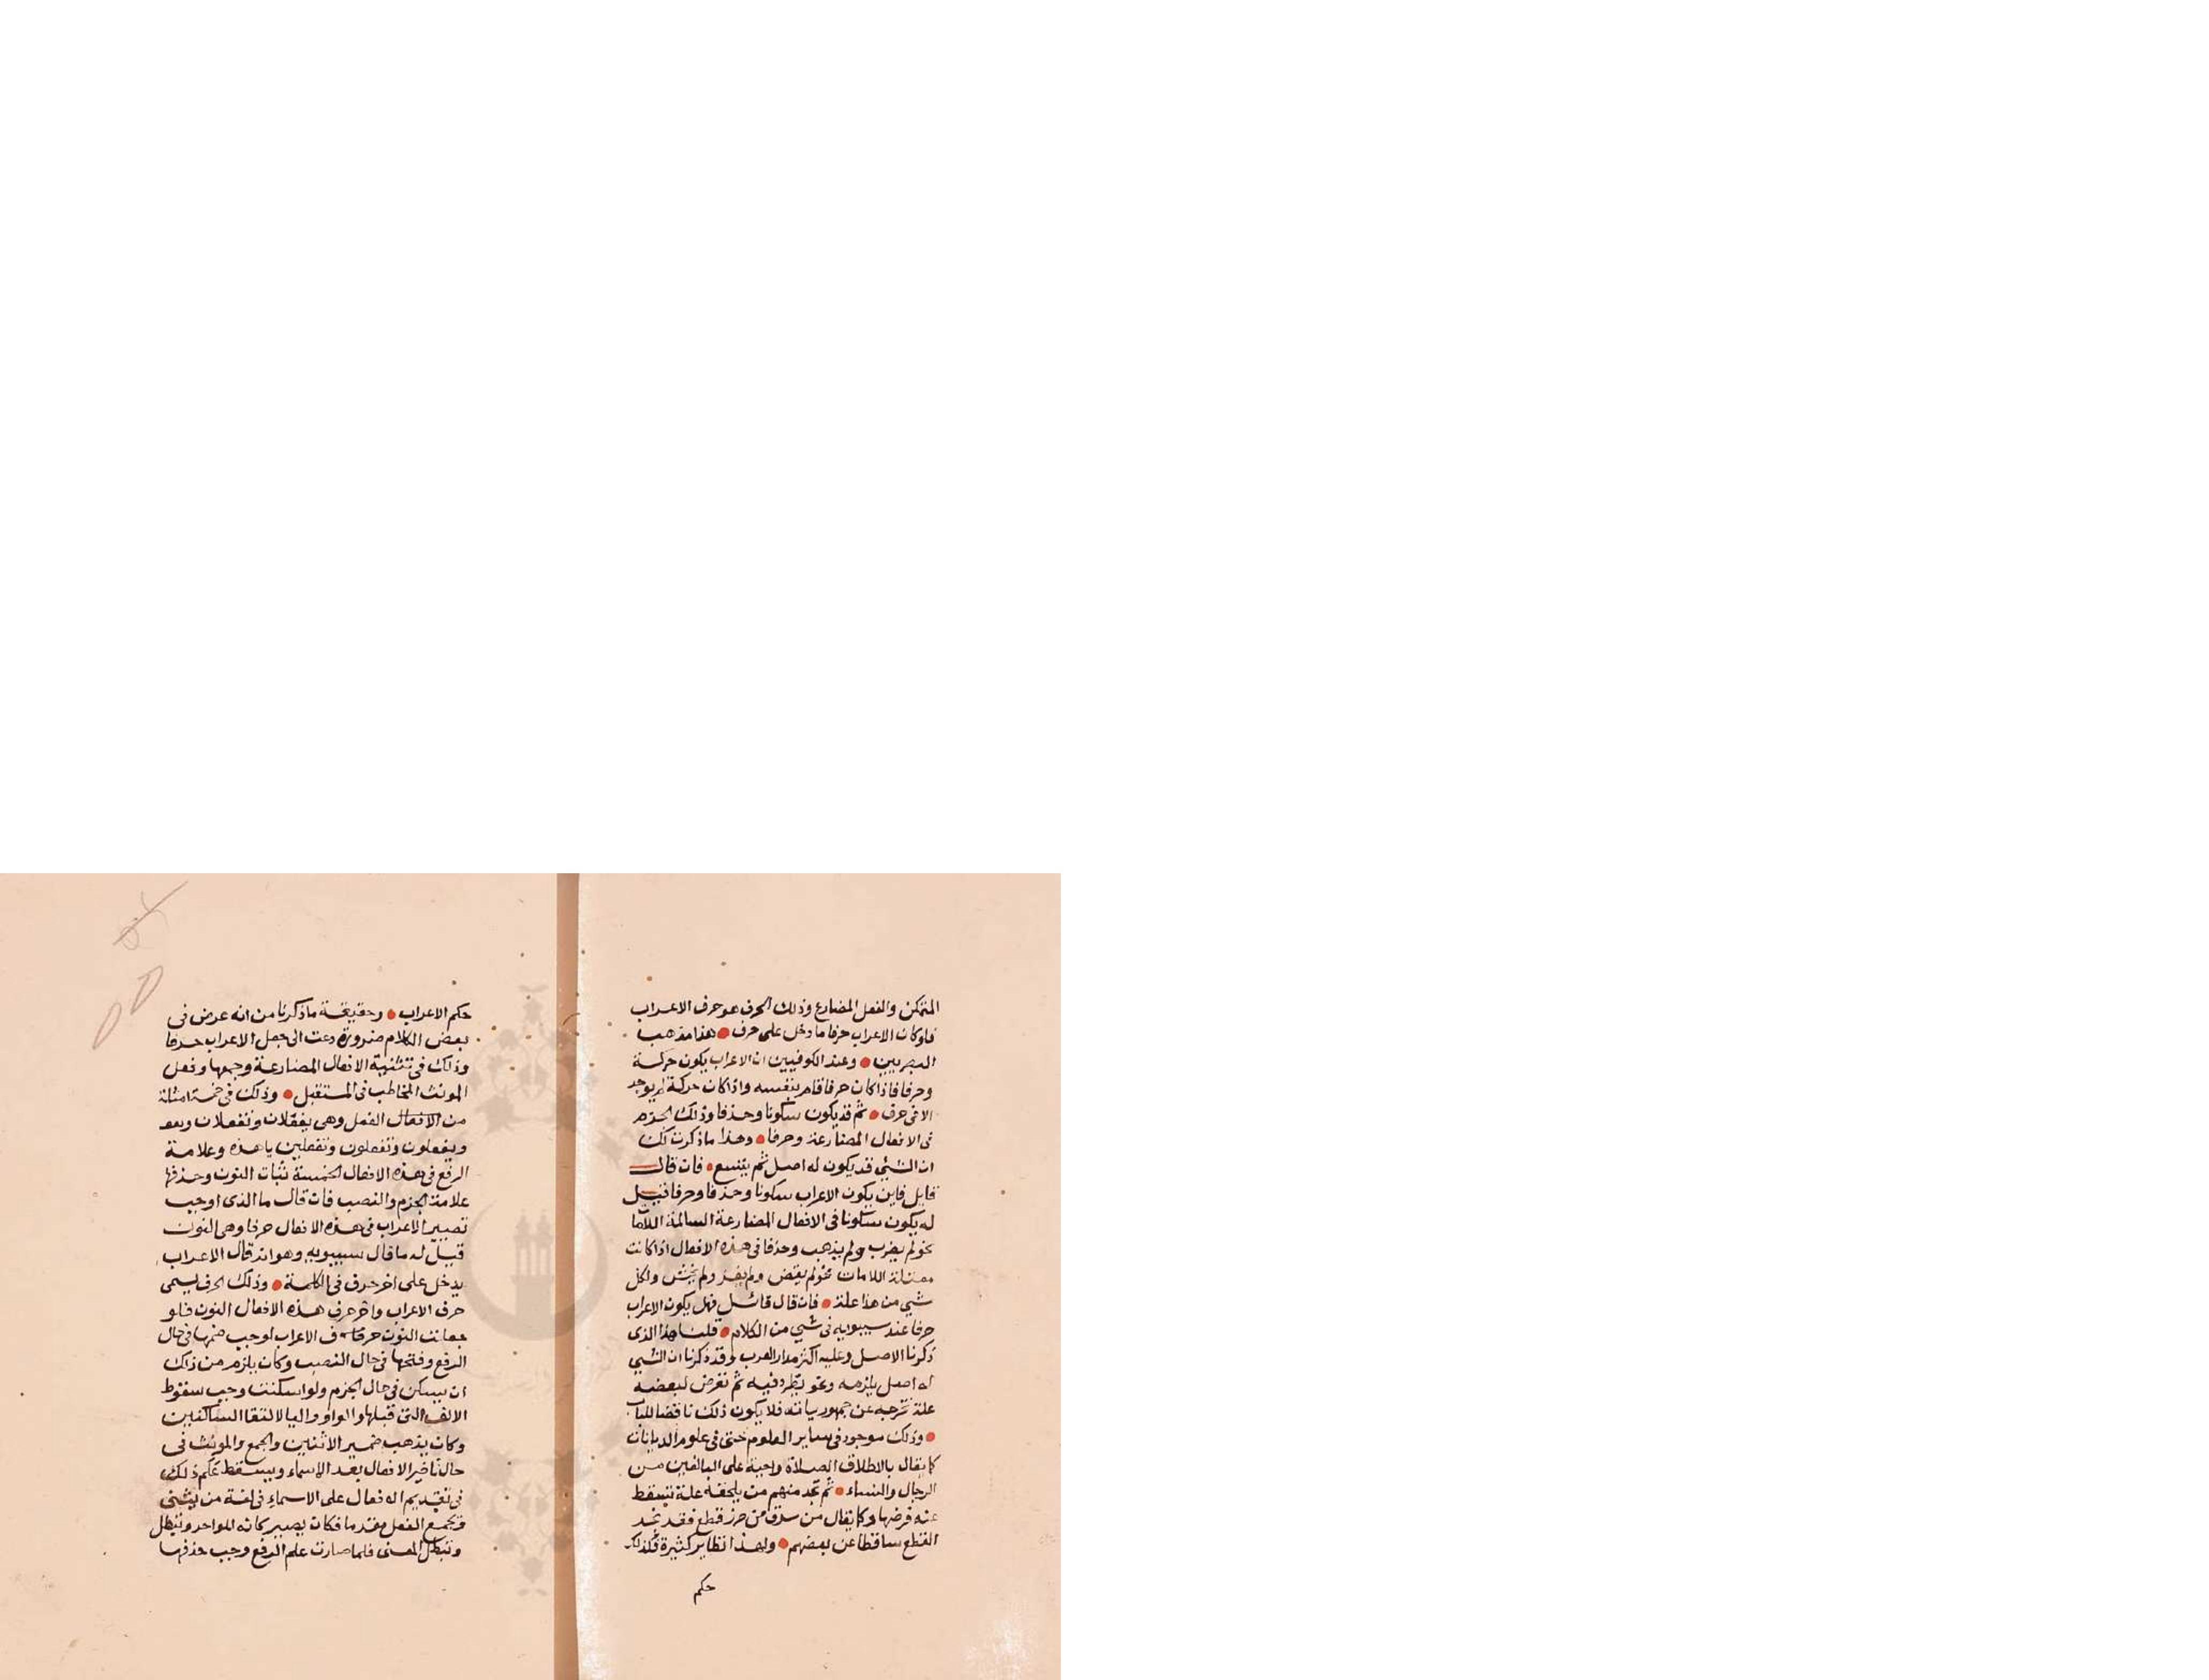 المتمكن والفعل المضارع وذلك الحرف هو حرف الاعراب
فلوكان الاعراب حرفا ما دخل على حرف هذا مذهب
البصريين وعند الكوفيين ان الاعراب يكون حركة
وحرفا فاذا كان حرفا قام بنفسه واذا كان حركة لم يوجد
الا فى حرف ثم قد يكون سكونا وحذفا وذلك الجزم
فى الافعال المضارعة وحرفا وهذا ما ذكرت لك
ان الشيء قد يكون له اصل ثم يتسع فان قال
قايل فاين يكون الاعراب سكونا وحذفا وحرفا قيل
له يكون سكونا فى الافعال المضارعة السالمة اللاما
نحو لم يضرب ولم يذهب وحذفا فى هذه الافعال اذا كانت
معتلة اللامات نحو لم يقض ولم يغز ولم يخش ولكل
شي من هذا علة فان قال قائل فهل يكون الاعراب
حرفا عند سيبويه فى شي من الكلام قلنا هذا الذى
ذكرنا الاصل وعليه اكثر مدار العرب وقد ذكرنا ان الشي
له اصل يلزمه ونحو يطرد فيه ثم تعرض لبعضه
علة تخرجه عن جمهور بابه فلا يكون ذلك ناقضا للباب
وذلك موجود فى ساير العلوم حتى فى علوم الديانات
كما يقال بالاطلاق الصلاة واجبة على البالغين من
الرجال والنساء ثم تجد منهم من يلحقه علة تسقط
عنه فرضها وكما يقال من سرق من حرز قطع فقد تجد
القطع ساقطا عن بعضهم ولهذا نظاير كثيرة فكذلك
حكم
حكم الاعراب وحقيقة ما ذكرنا من انه عرض فى
بعض الكلام ضرورة دعت الى جعل الاعراب حرفا
وذلك فى تثنية الافعال المضارعة وجمعها وفعل
المونث المخاطب فى المستقبل وذلك فى خمسة امثلة
من الافعال الفعل وهى يفعلان وتفعلان
ويفعلون وتفعلون وتفعلين ياهذه وعلامة
الرفع فى هذه الافعال الخمسة ثبات النون وحذفها
علامة الجزم والنصب فان قال ما الذى اوجب
تصيير الاعراب فى هذه الافعال حرفا وهى النون
قيل له ما قال سيبويه وهو انه قال الاعراب
يدخل على اخر حرف فى الكلمة وذلك الحرف يسمى
حرف الاعراب واخر حرف هذه الافعال النون فلو
جعلت النون حرف الاعراب لوجب ضمها فى حال
الرفع وفتحها فى حال النصب وكان يلزم من ذلك
ان يسكن فى حال الجزم ولو اسكنت وجب سقوط
الالف التى قبلها والواو واليا لالتقا الساكنين
وكان يذهب ضمير الاثنين والجمع والمونث فى
حال تاخير الافعال بعد الاسماء ويسقط علم ذلك
فى تقديم الافعال على الاسماء فى لغة من يثنى
ويجمع الفعل مقدما فكان يصير كانه للواحد وتبطل
وتبطل المعنى فلما صارت علم الرفع وجب حذفها